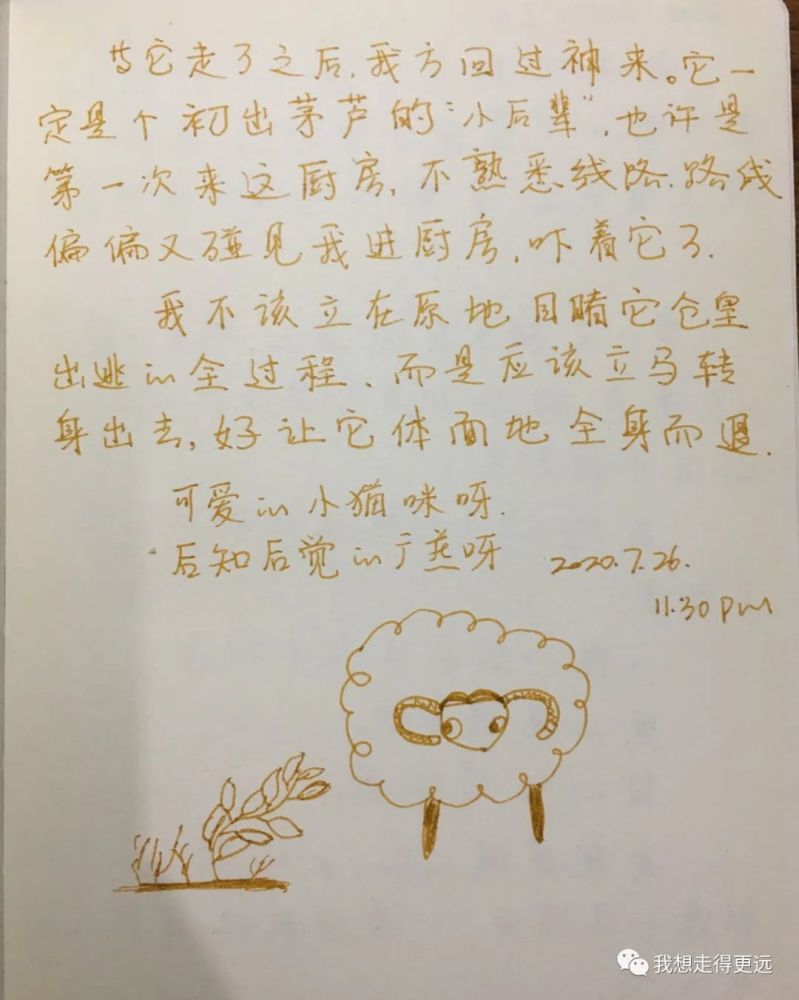 当它走了之后，我方回过神来。它一
定是个初出茅芦的“小后辈”，也许是
第一次来这厨房，不熟悉线路.路线
偏偏又碰见我进厨房，吓着它了.
我不该立在原地目睹它仓皇
出逃的全过程、而是应该立马转
身出去，好让它体面地全身而退.
可爱的小猫咪呀.
后知后觉的广燕呀 2020.7.26.
11:30 pm
我想走得更远